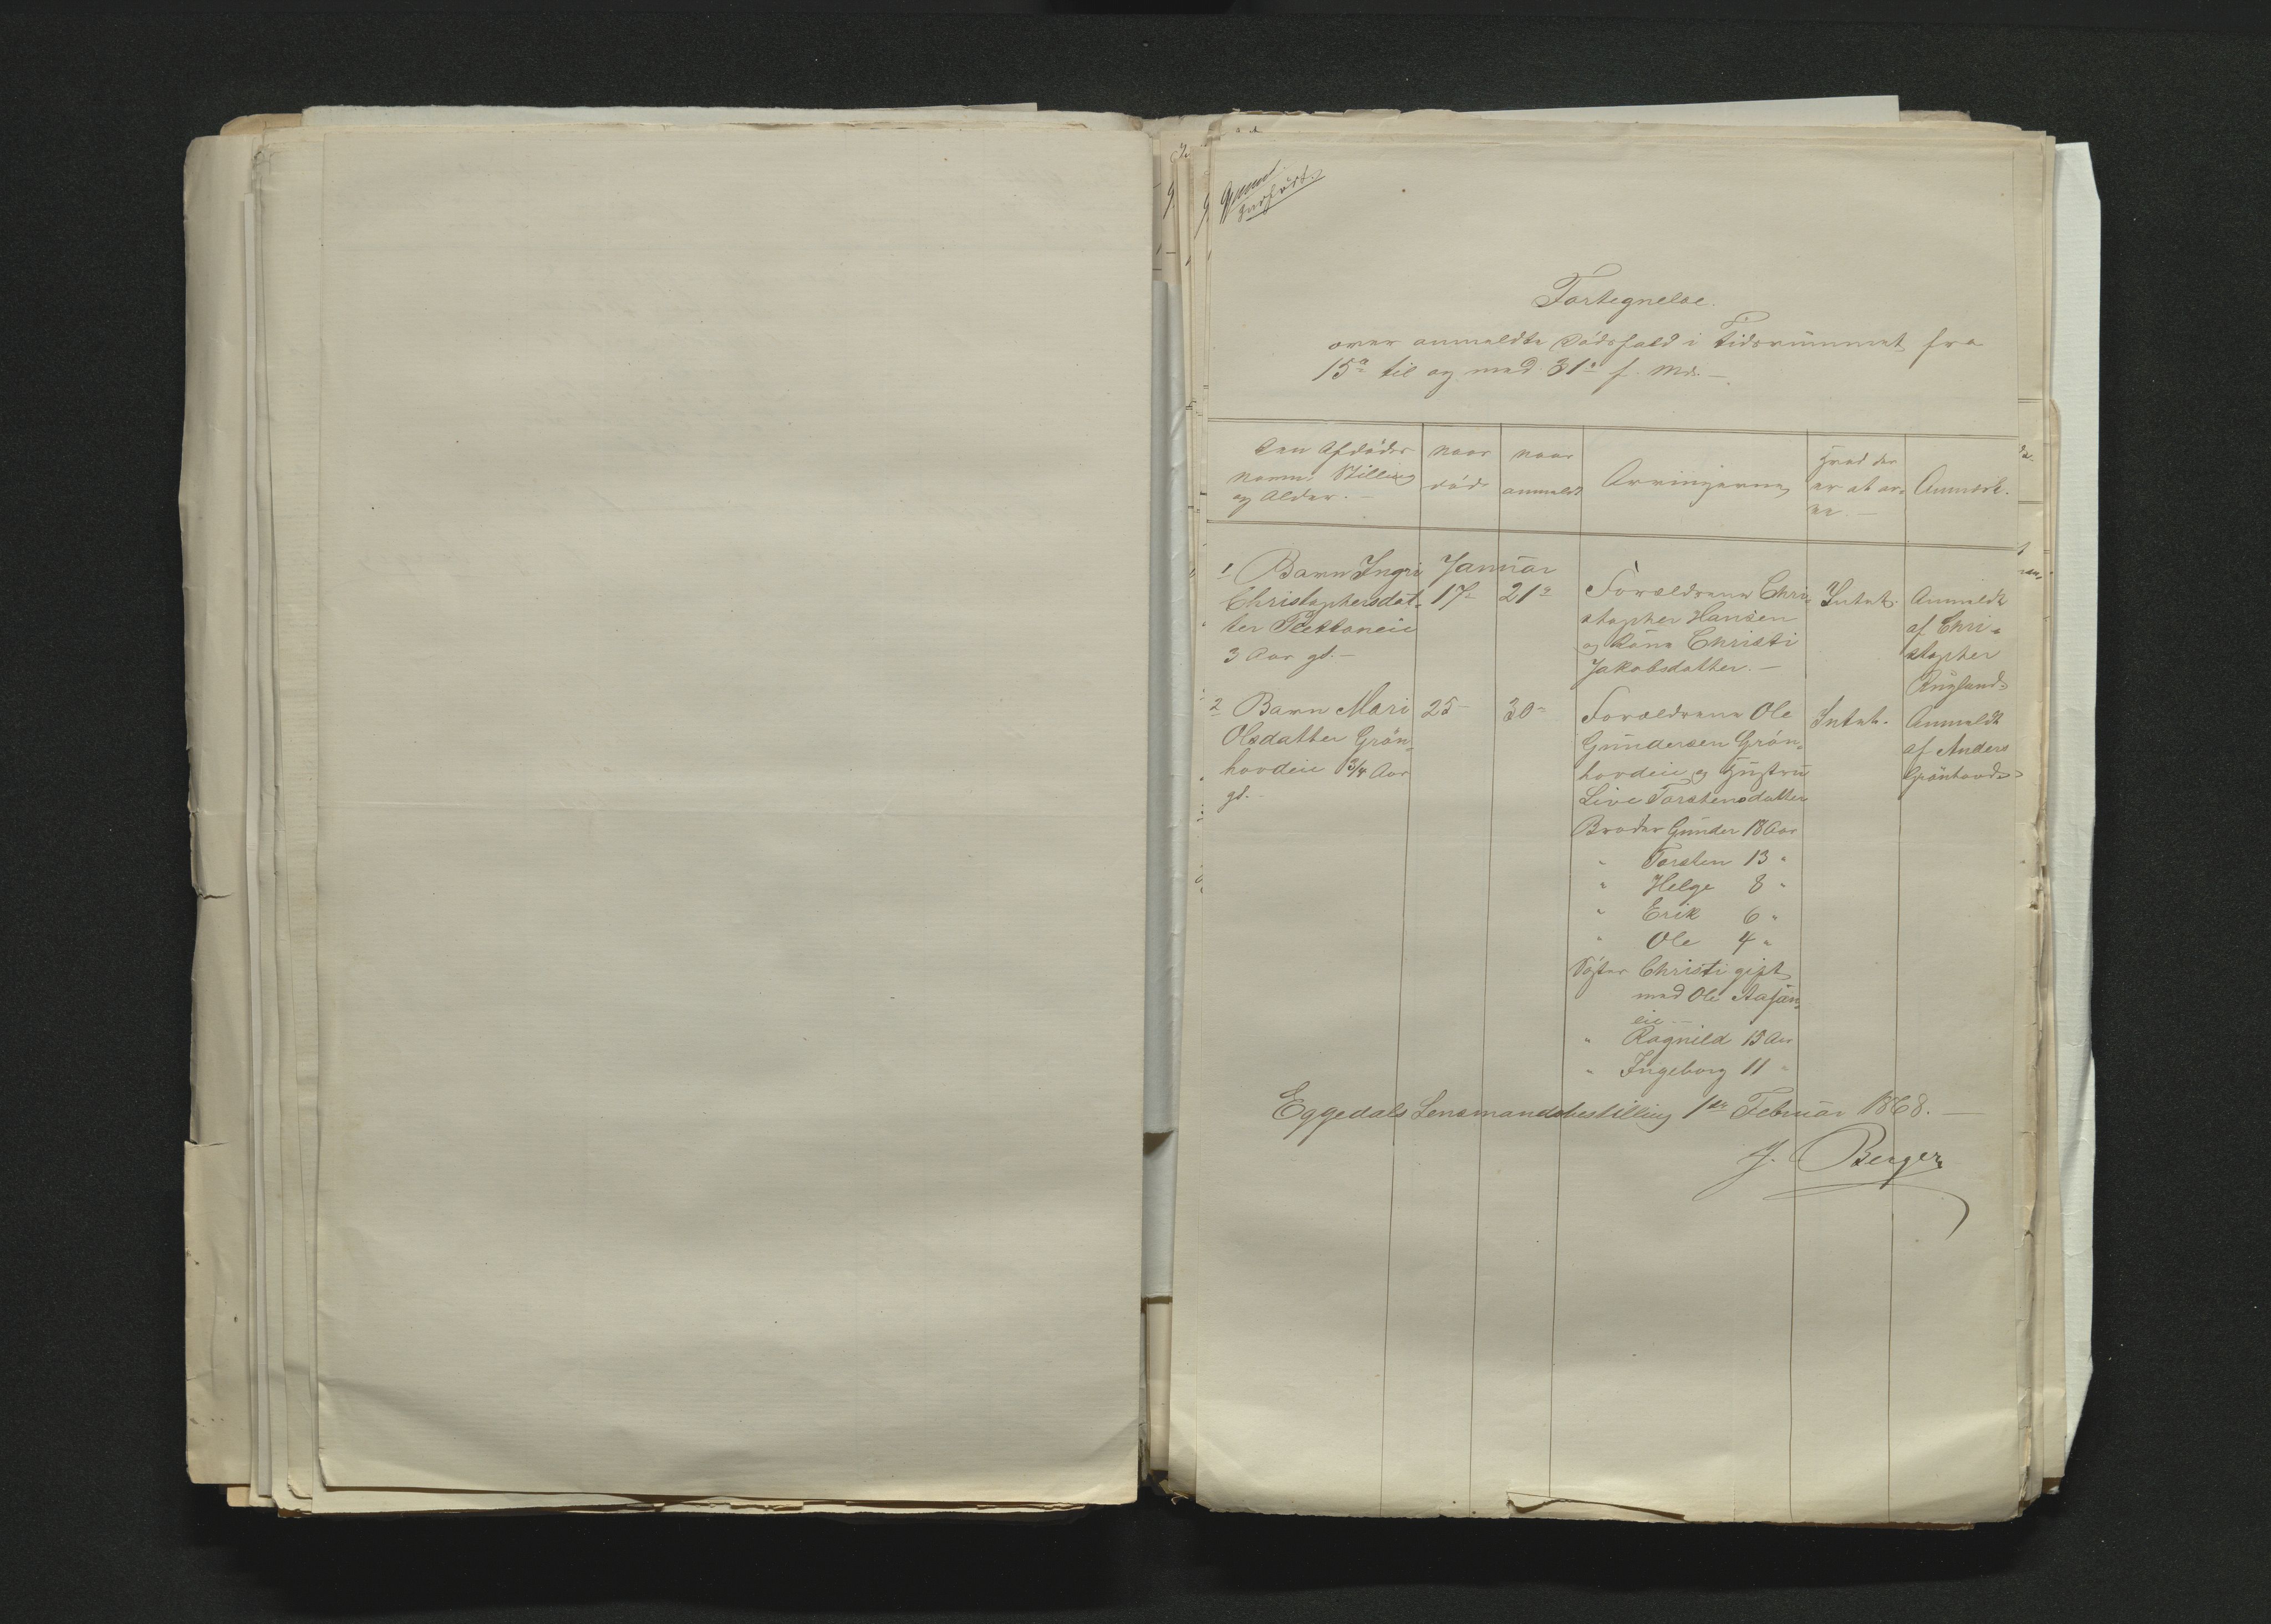 Fortegnelse.
over anmeldte Dödsfald i Tidsrummet fra
15de til og med 31te f. Md. —
Den Afdödes
Navn, Stilling
og Alder. —
Naar
död
Naar
anmeldt
Arvingerne
Hvad der
er at ar-
ve. —
Anmærk.
1 Barn Ingri
Christophersdat-
ter Plettaneie
3 Aar gl. —
Januar
17de
21de
Forældrene Chri-
stopher Hansen
og Kone Christi
Jakobsdatter. —
Intet.
Anmeldt
af Chri-
stopher
Rugland
2 Barn Mari
Olsdatter Grön-
hovdeie 3/4 Aar
gl. —
25
30te
Forældrene Ole
Gundersen Grön-
hovdeie og Hustru
Live Torstensdatter
Broder Gunder 18 Aar
" Torsten 13 "
" Helge 8 "
" Erik 6 "
" Ole 4 "
Söster Christi gift
med Ole
eie —
" Ragnild 15 Aar
" Ingeborg 11 "
Intet.
Anmeldt
af Anders
Grönhovd
Eggedals Lensmandsbestilling 1ste Februar 1868. —
J. Berger